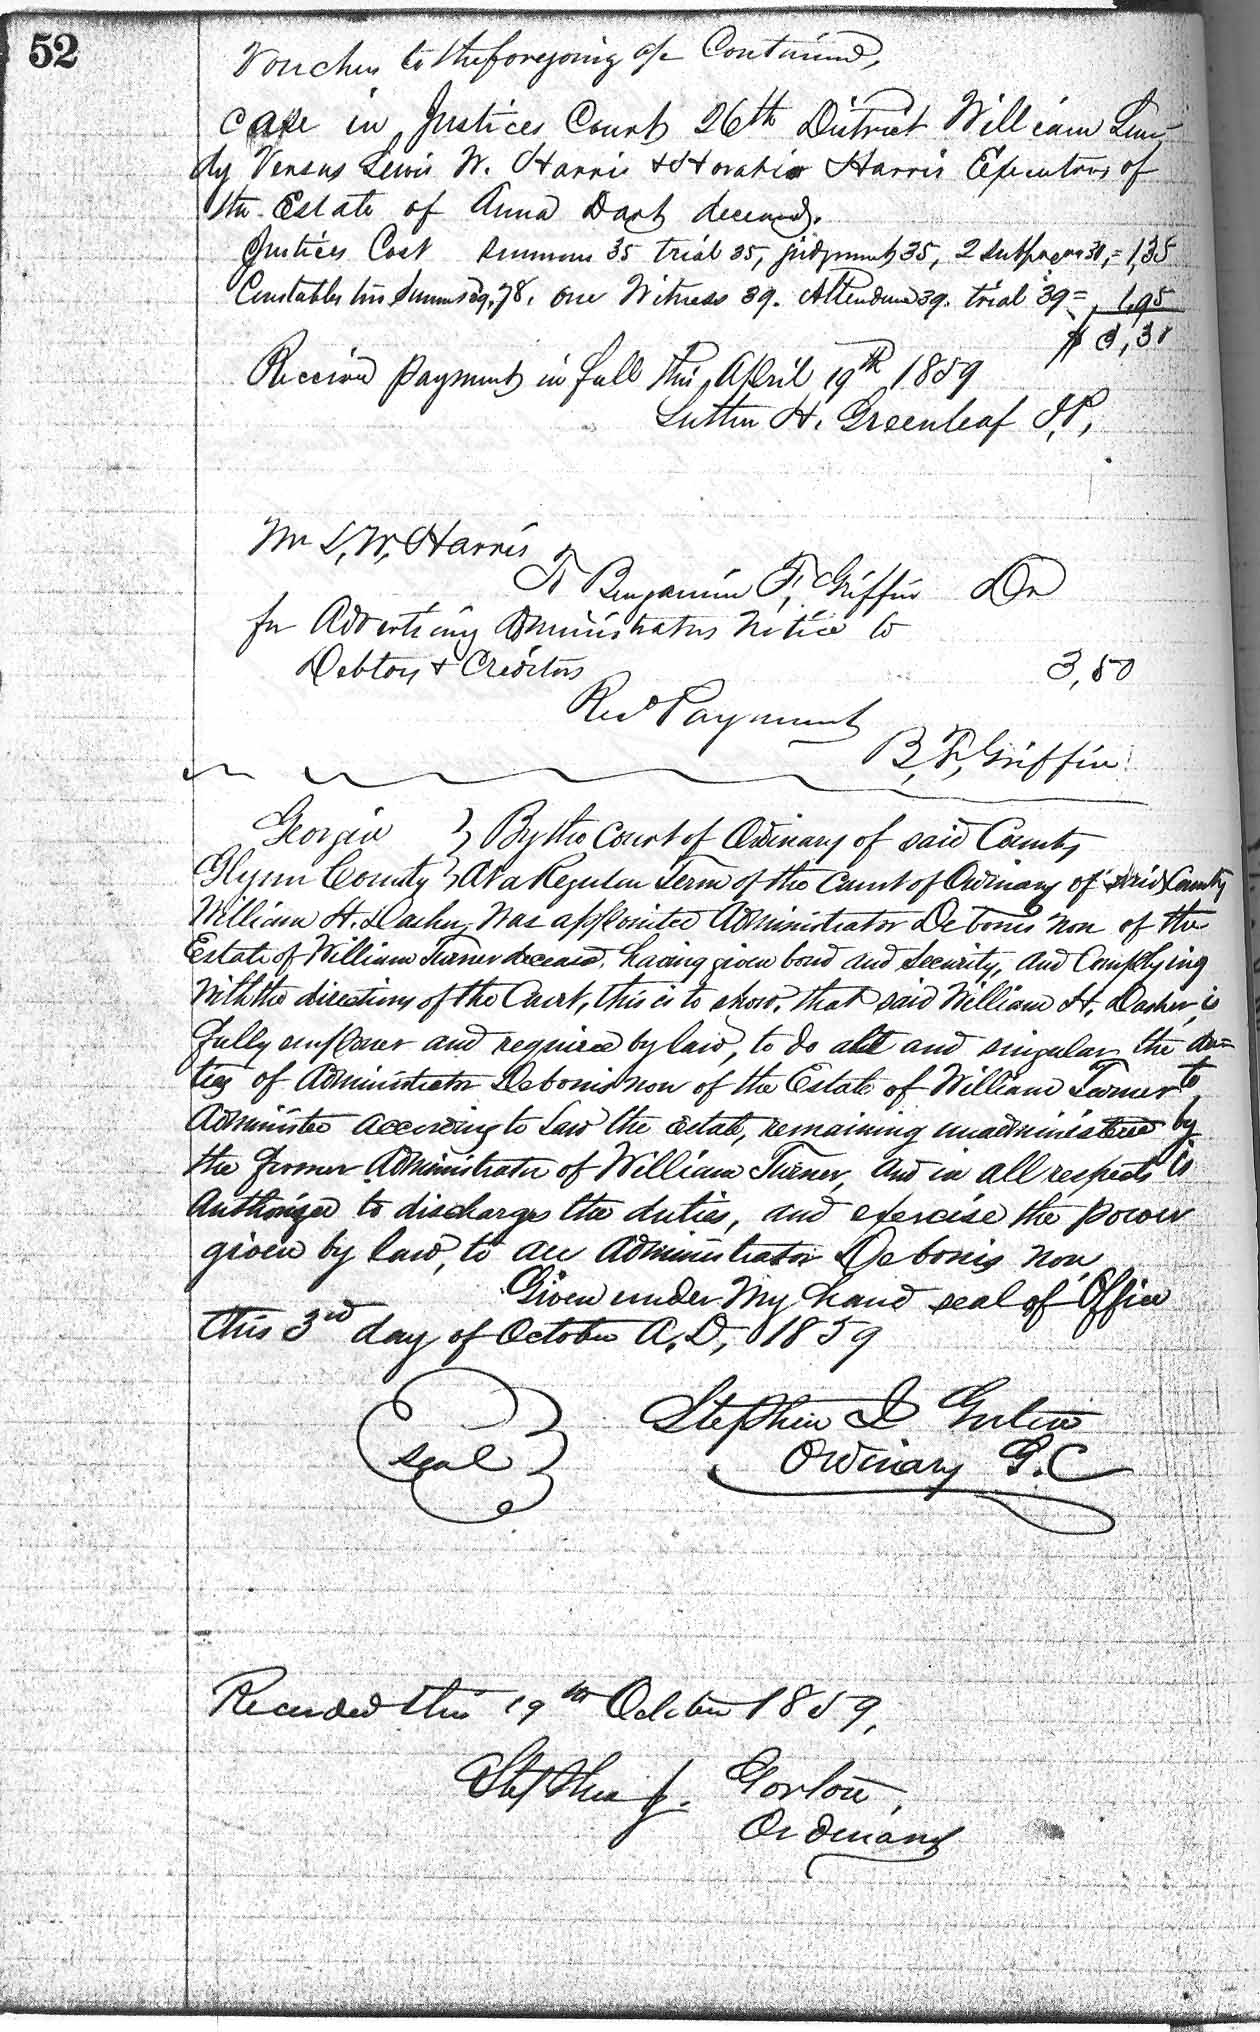 52
Vouchers to the foregoing a/c Continued,
Case in Justices Court 26th District William Lun
dy Versus Lewis W. Harris & Horatio Harris Executors of
the Estate of Anna Dart deceased.
Justices Cost summons 35 trial 35, judgment 35, 2 subpoenas 30, = 1,35
Constables two summons 39, 78, one Witness 39. Attendance 39. trial 39 = 1,95
$ 3,30
Received payment in full this April 19th 1859
Luther H. Greenleaf J,P,
Mr L, W, Harris
To Benjamin F, Griffin Dr
for Advertising Administrators Notice to
Debtors & Creditors 3,50
Recd Payment
B, F, Griffin
Georgia } By the Court of Ordinary of said County
Glynn County } At a Regular Term of the Court of Ordinary of said County
William H. Dasher, was appointed Administrator De bonis non of the
Estate of William Turner deceased. having given bond and security, and Complying
With the directions of the Court, this is to show, that said William H, Dasher, is
fully empower and required by law, to do all and singular the du=
ties of Administrator De bonis non of the Estate of William Turner to
Administer according to Law the estate, remaining unadministered by
the former Administrator of William Turner, and in all respects is
Authorized to discharge the duties, and exercise the power
given by law, to an Administrator De bonis non,
Given under My hand seal of Office
this 3rd day of October A,D, 1859
Seal
Stephen J Gorton
Ordinary G.C
Recorded this 19th October 1859,
Stephen J. Gorton,
Ordinary